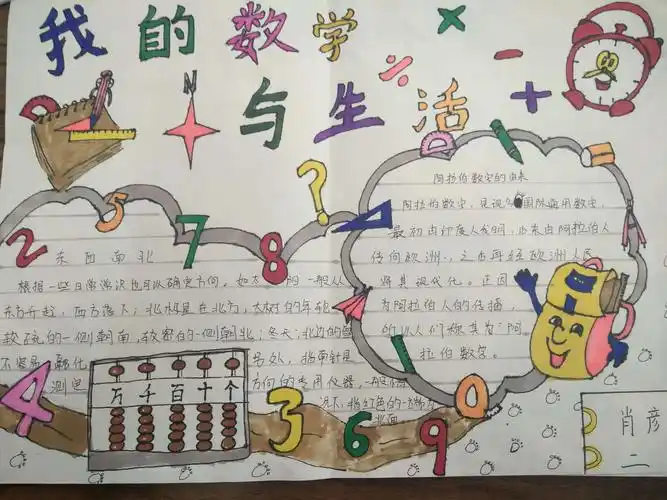 我的数学
与生活
N
阿拉伯数字的由来
阿拉伯数字,是现今国际通用数字,
最初由印度人发明,由来由阿拉伯人
传向欧洲,之由再经欧洲人民
将其现代化。正因
为阿拉伯人的传播,
所以人们称其为"阿
拉伯数字。
东西南北
根据一些日常常识也可以确定方向。如太阳一般从
东方升起,西方落下;北极星在北方,大树的年轮
较疏的一侧朝南,较密的一侧朝北;冬天,北边的雪
不容易融化
另外,指南针是
测定
方向的专用仪器,一般情
况下,指红色的一端为
北面
万千百十个
2
5
7
8
?
4
3
6
9
0
肖彦
二